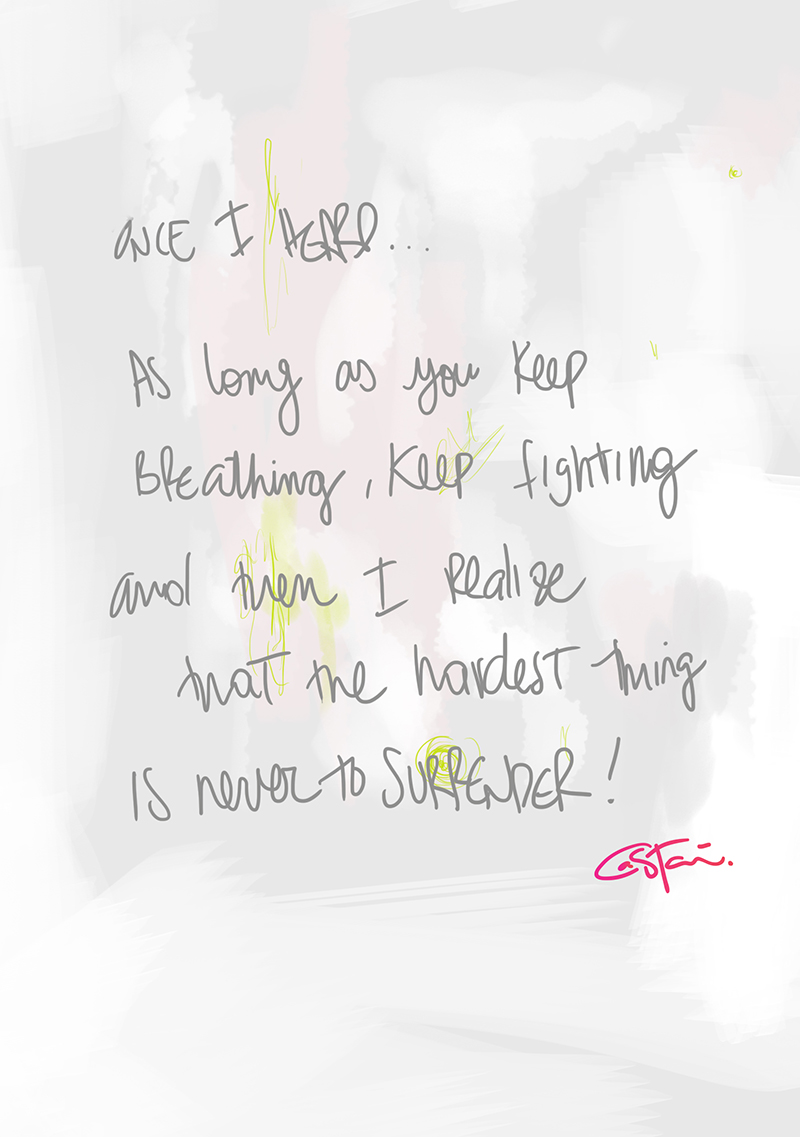 ONCE I HEARD...
As long as you keep
Breathing, keep fighting
and then I realize
that the hardest thing
is never to SURRENDER!